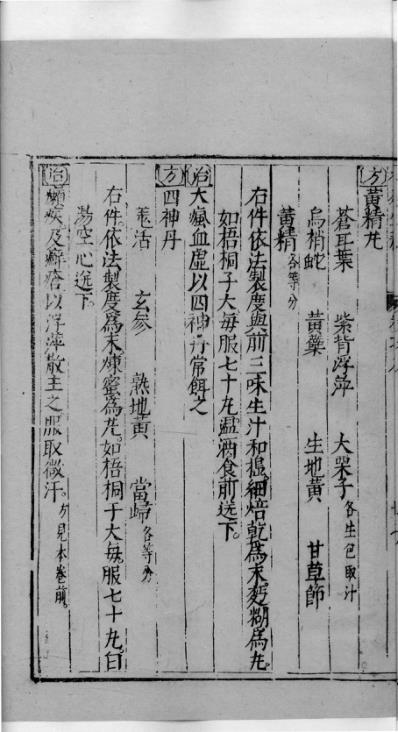 方黃精丸
蒼耳葉 紫背浮萍 大栗子各生包取汁
烏梢蛇 黃蘗 生地黃 甘草節
黃精各等分
右件依法製度與前三味生汁和搗細焙乾爲末麪糊爲丸
如梧桐子大每服七十丸溫酒食前送下。
治大瘋血虛以四神丹常餌之
方四神丹
羗活 玄參 熟地黃 當歸各等分
右件依法製度爲末煉蜜爲丸。如梧桐子大每服七十丸。白
湯空心送下。
治癩疾及癬瘡以浮萍散主之服取微汗。方見本卷前。